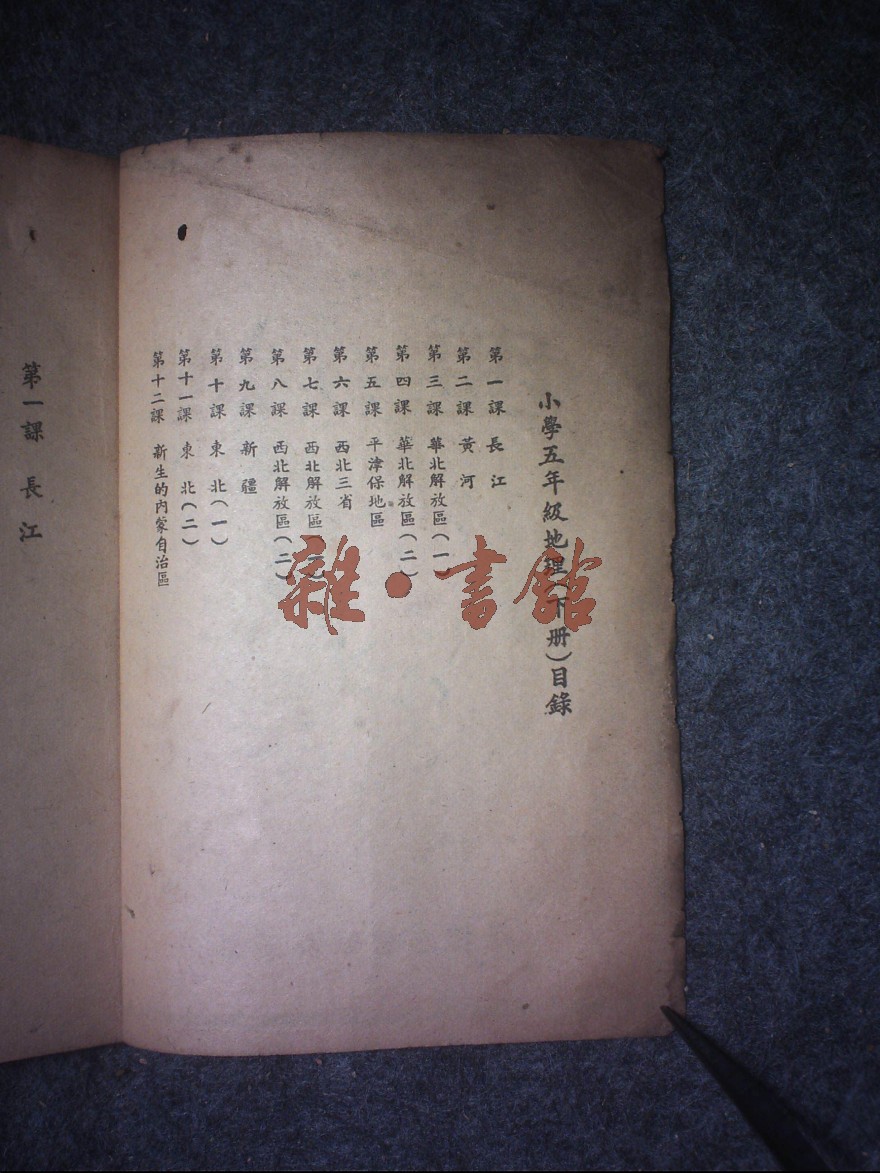 小學五年級地理（下册）目錄
第一課 長江
第二課 黃河
第三課 華北解放區（一）
第四課 華北解放區（二）
第五課 平津保地區
第六課 西北三省
第七課 西北解放區（一）
第八課 西北解放區（二）
第九課 新疆
第十課 東北（一）
第十一課 東北（二）
第十二課 新生的內蒙自治區
第一課 長江
雜·書館